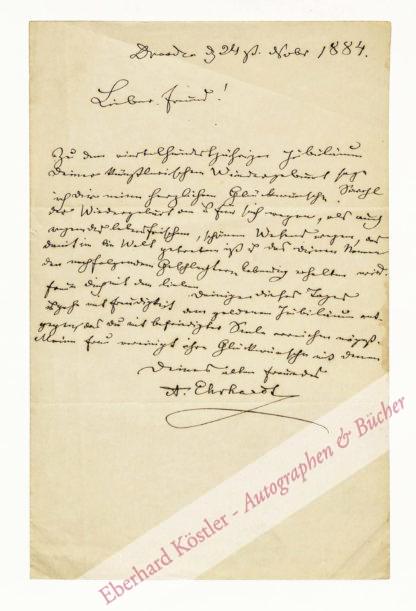 Dresden d 24st. Novbr 1884.
Lieber Freund!
Zu dem viertelhundertjährigen Jubiläum
Deiner künstlerischen Wiedergeburt sage
ich Dir meine herzlichen Glückwünsche. Sowohl
der Wiedergeburt an & für sich wegen, als auch
wegen des lebensfrischen, schönen Wesens wegen, das
damit in die Welt getreten ist & das Deinen Namen
den nachfolgenden Geschlechtern lebendig erhalten wird.
Freue Dich mit den lieben Deinigen dieses Tages
& gehe mit Freudigkeit dem goldenen Jubiläum ent-
gegen, das Du mit befriedigter Seele erreichen mögest.
Meine Frau vereinigt ihre Glückwünsche mit denen
Deines alten Freundes
A. Ehrhardt
Eberhard Köstler - Autographen & Bücher